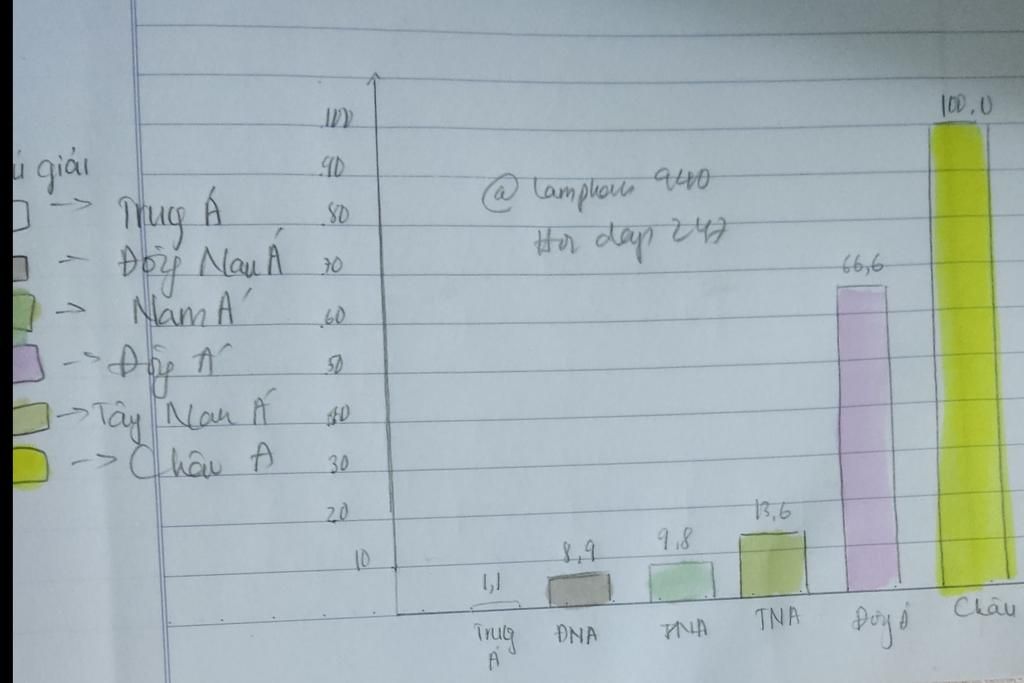 100,0
100
90
ú giải
@ lamphon 940
→ Trug Á
80
Hoi dap 247
→ Đôg Nam Á
70
66,6
→ Nam Á
60
→ Đôg Á
50
→ Tây Nam Á
40
→ Châu Á
30
20
13,6
9,8
8,9
10
1,1
Trug Á
ĐNA
ĐNA
TNA
Đôg Á
Châu